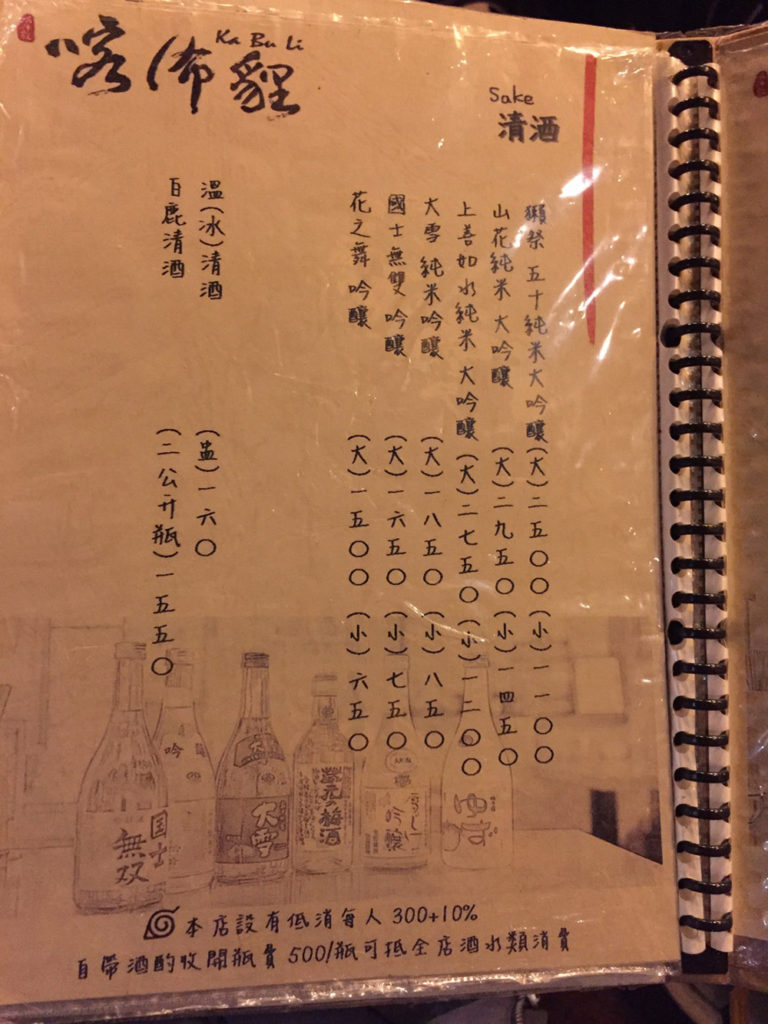 喀佈貍
Ka Bu Li
Sake
清酒
獺祭 五十純米大吟釀(大)二五〇〇(小)一一〇〇
山花純米 大吟釀 (大)二九五〇(小)一四五〇
上善如水純米 大吟釀(大)二七五〇(小)一二〇〇
大雪 純米吟釀 (大)一八五〇(小)八五〇
國士無雙 吟釀 (大)一六五〇(小)七五〇
花之舞 吟釀 (大)一五〇〇(小)六五〇
溫(冰)清酒 (盅)一六〇
白鹿清酒 (二公升瓶)一五五〇
国士無双
吟
大雪
吟釀
ゆず
本店設有低消每人 300+10%
自帶酒酌收開瓶費 500/瓶可抵全店酒水類消費